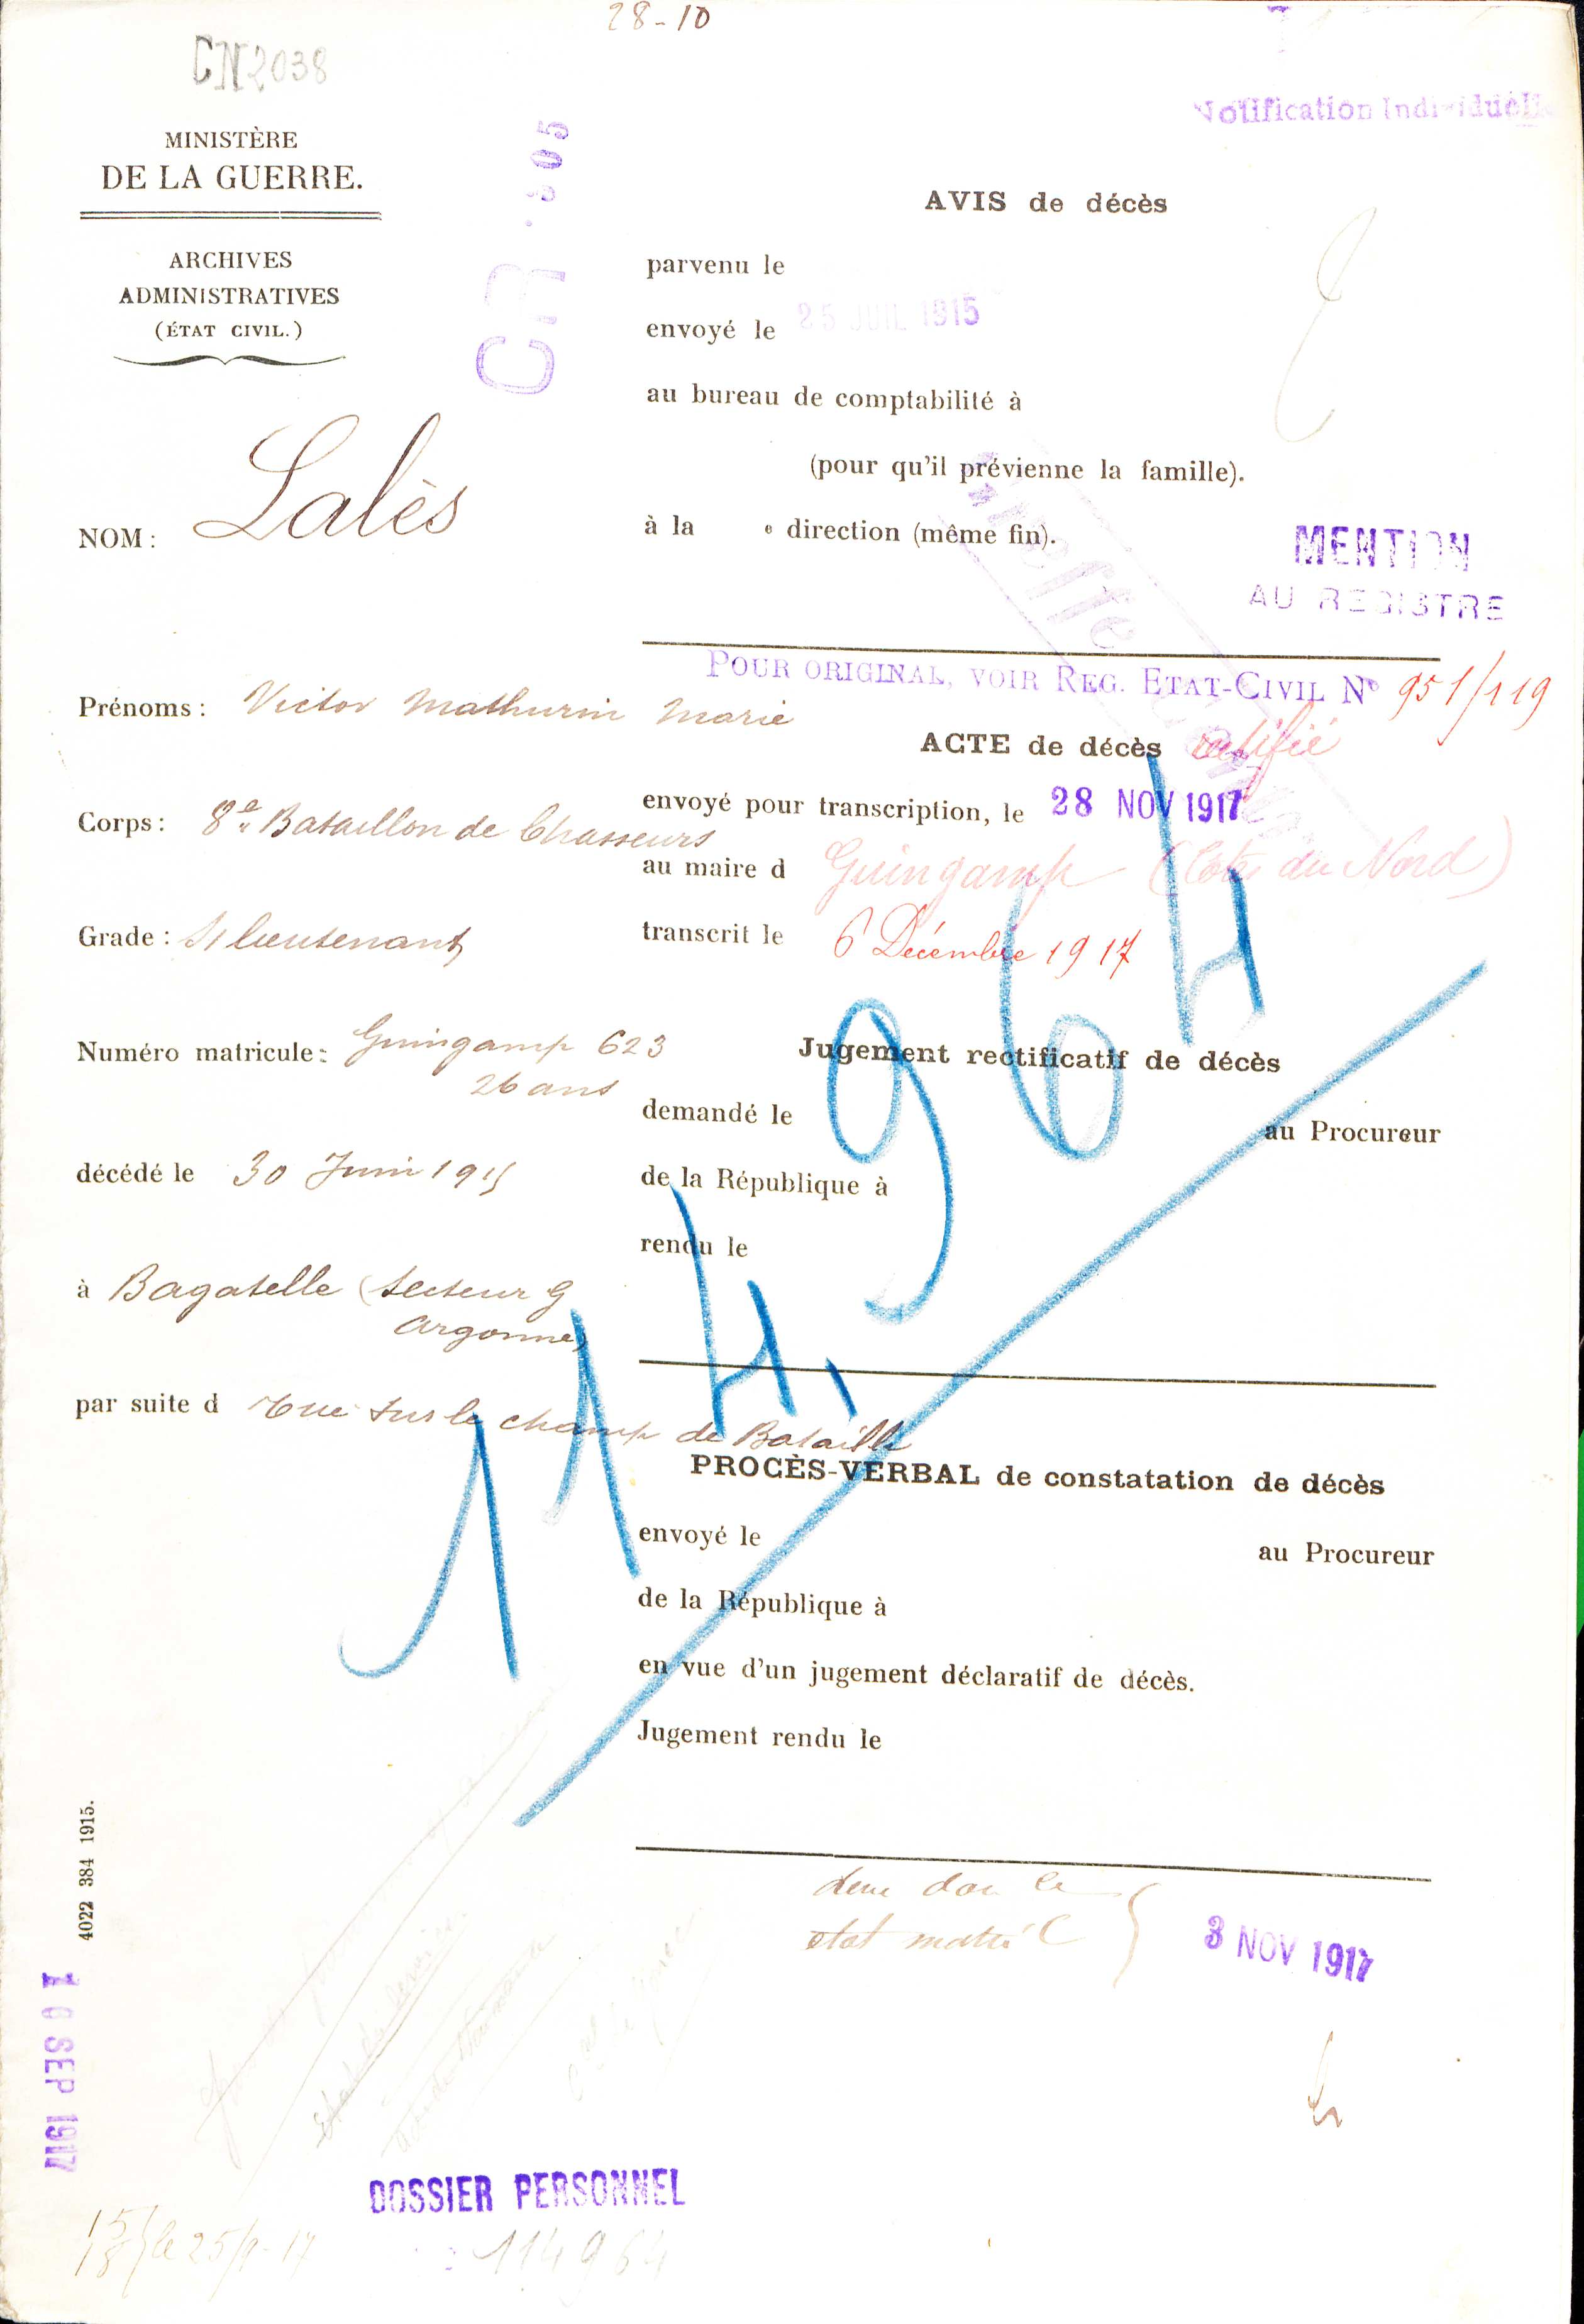 28-10
CN2038
MINISTÈRE
DE LA GUERRE.
ARCHIVES
ADMINISTRATIVES
(ÉTAT CIVIL.)
NOM: Lalès
Prénoms: Victor Mathurin Marie
Corps: 8e Bataillon de Chasseurs
Grade: S/lieutenant
Numéro matricule: Guingamp 623
26 ans
décédé le 30 Juin 1915
à Bagatelle (Secteur G
Argonne)
par suite d Tué sur le champ de Bataille
4022 384 1915.
CR
Notification Individuelle
AVIS de décès
parvenu le
envoyé le 25 JUIL 1915
au bureau de comptabilité à
(pour qu'il prévienne la famille).
à la e direction (même fin).
MENTION
AU REGISTRE
POUR ORIGINAL, VOIR REG. ETAT-CIVIL No 951/119
ACTE de décès ratifié
envoyé pour transcription, le 28 NOV 1917
au maire d Guingamp (Côtes du Nord)
transcrit le 6 Décembre 1917
Jugement rectificatif de décès
demandé le au Procureur
de la République à
rendu le
114.964
PROCÈS-VERBAL de constatation de décès
envoyé le au Procureur
de la République à
en vue d'un jugement déclaratif de décès.
Jugement rendu le
3 NOV 1917
16 SEP 1917
DOSSIER PERSONNEL
114964
15/18 le 25/9-17